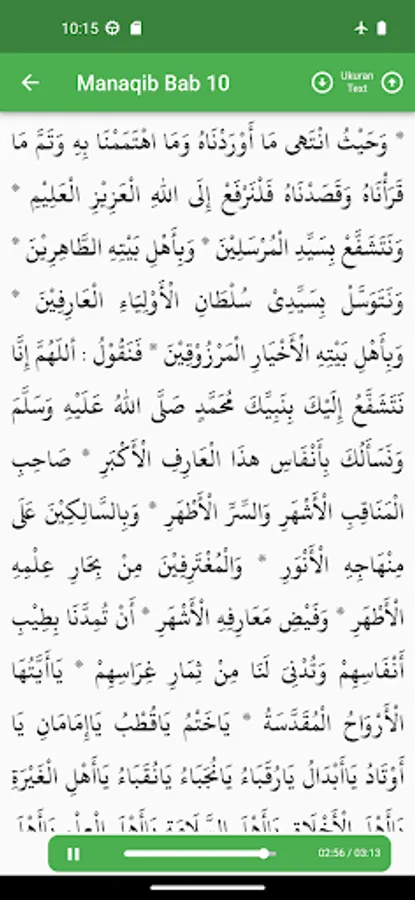 10:15
Manaqib Bab 10
Ukuran
Text
* وَحَيْثُ انْتَهٰى مَا أَوْرَدْنَاهُ وَمَا اهْتَمَمْنَا بِهِ وَتَمَّ مَا
قَرَأْنَاهُ وَقَصَدْنَاهُ فَلْنَرْفَعْ إِلَى اللهِ الْعَزِيْزِ الْعَلِيْمِ *
وَنَتَشَفَّعْ بِسَيِّدِ الْمُرْسَلِيْنَ * وَبِأَهْلِ بَيْتِهِ الطَّاهِرِيْنَ *
وَنَتَوَسَّلْ بِسَيِّدِىْ سُلْطَانِ الْأَوْلِيَاءِ الْعَارِفِيْنَ *
وَبِأَهْلِ بَيْتِهِ الْأَخْيَارِ الْمَرْزُوْقِيْنَ * فَنَقُوْلُ : اَللهُمَّ إِنَّا
نَتَشَفَّعُ إِلَيْكَ بِنَبِيِّكَ مُحَمَّدٍ صَلَّى اللهُ عَلَيْهِ وَسَلَّمَ
وَنَسَأَلُكَ بِأَنْفَاسِ هذَا الْعَارِفِ الْأَكْبَرِ * صَاحِبِ
الْمَنَاقِبِ الْأَشْهَرِ وَالسِّرِّ الْأَطْهَرِ * وَبِالسَّالِكِيْنَ عَلَى
مِنْهَاجِهِ الْأَنْوَرِ * وَالْمُغْتَرِفِيْنَ مِنْ بِحَارِ عِلْمِهِ
الْأَطْهَرِ * وَفَيْضِ مَعَارِفِهِ الْأَشْهَرِ * أَنْ تُمِدَّنَا بِطِيْبِ
أَنْفَاسِهِمْ وَتُدْنِىَ لَنَا مِنْ ثِمَارِ غِرَاسِهِمْ * يَاأَيَّتُهَا
الْأَرْوَاحُ الْمُقَدَّسَةُ * يَاخَتْمُ يَاقُطْبُ يَاإِمَامَانِ يَا
أَوْتَادُ يَاأَبْدَالُ يَارُقَبَاءُ يَانُجَبَاءُ يَانُقَبَاءُ يَاأَهْلَ الْغَيْرَةِ
يَاأَهْلَ الْأَخْلَاقِ يَاأَهْلَ السَّلَامَةِ يَاأَهْلَ الْعِلْمِ يَاأَهْلَ
02:56 / 03:13